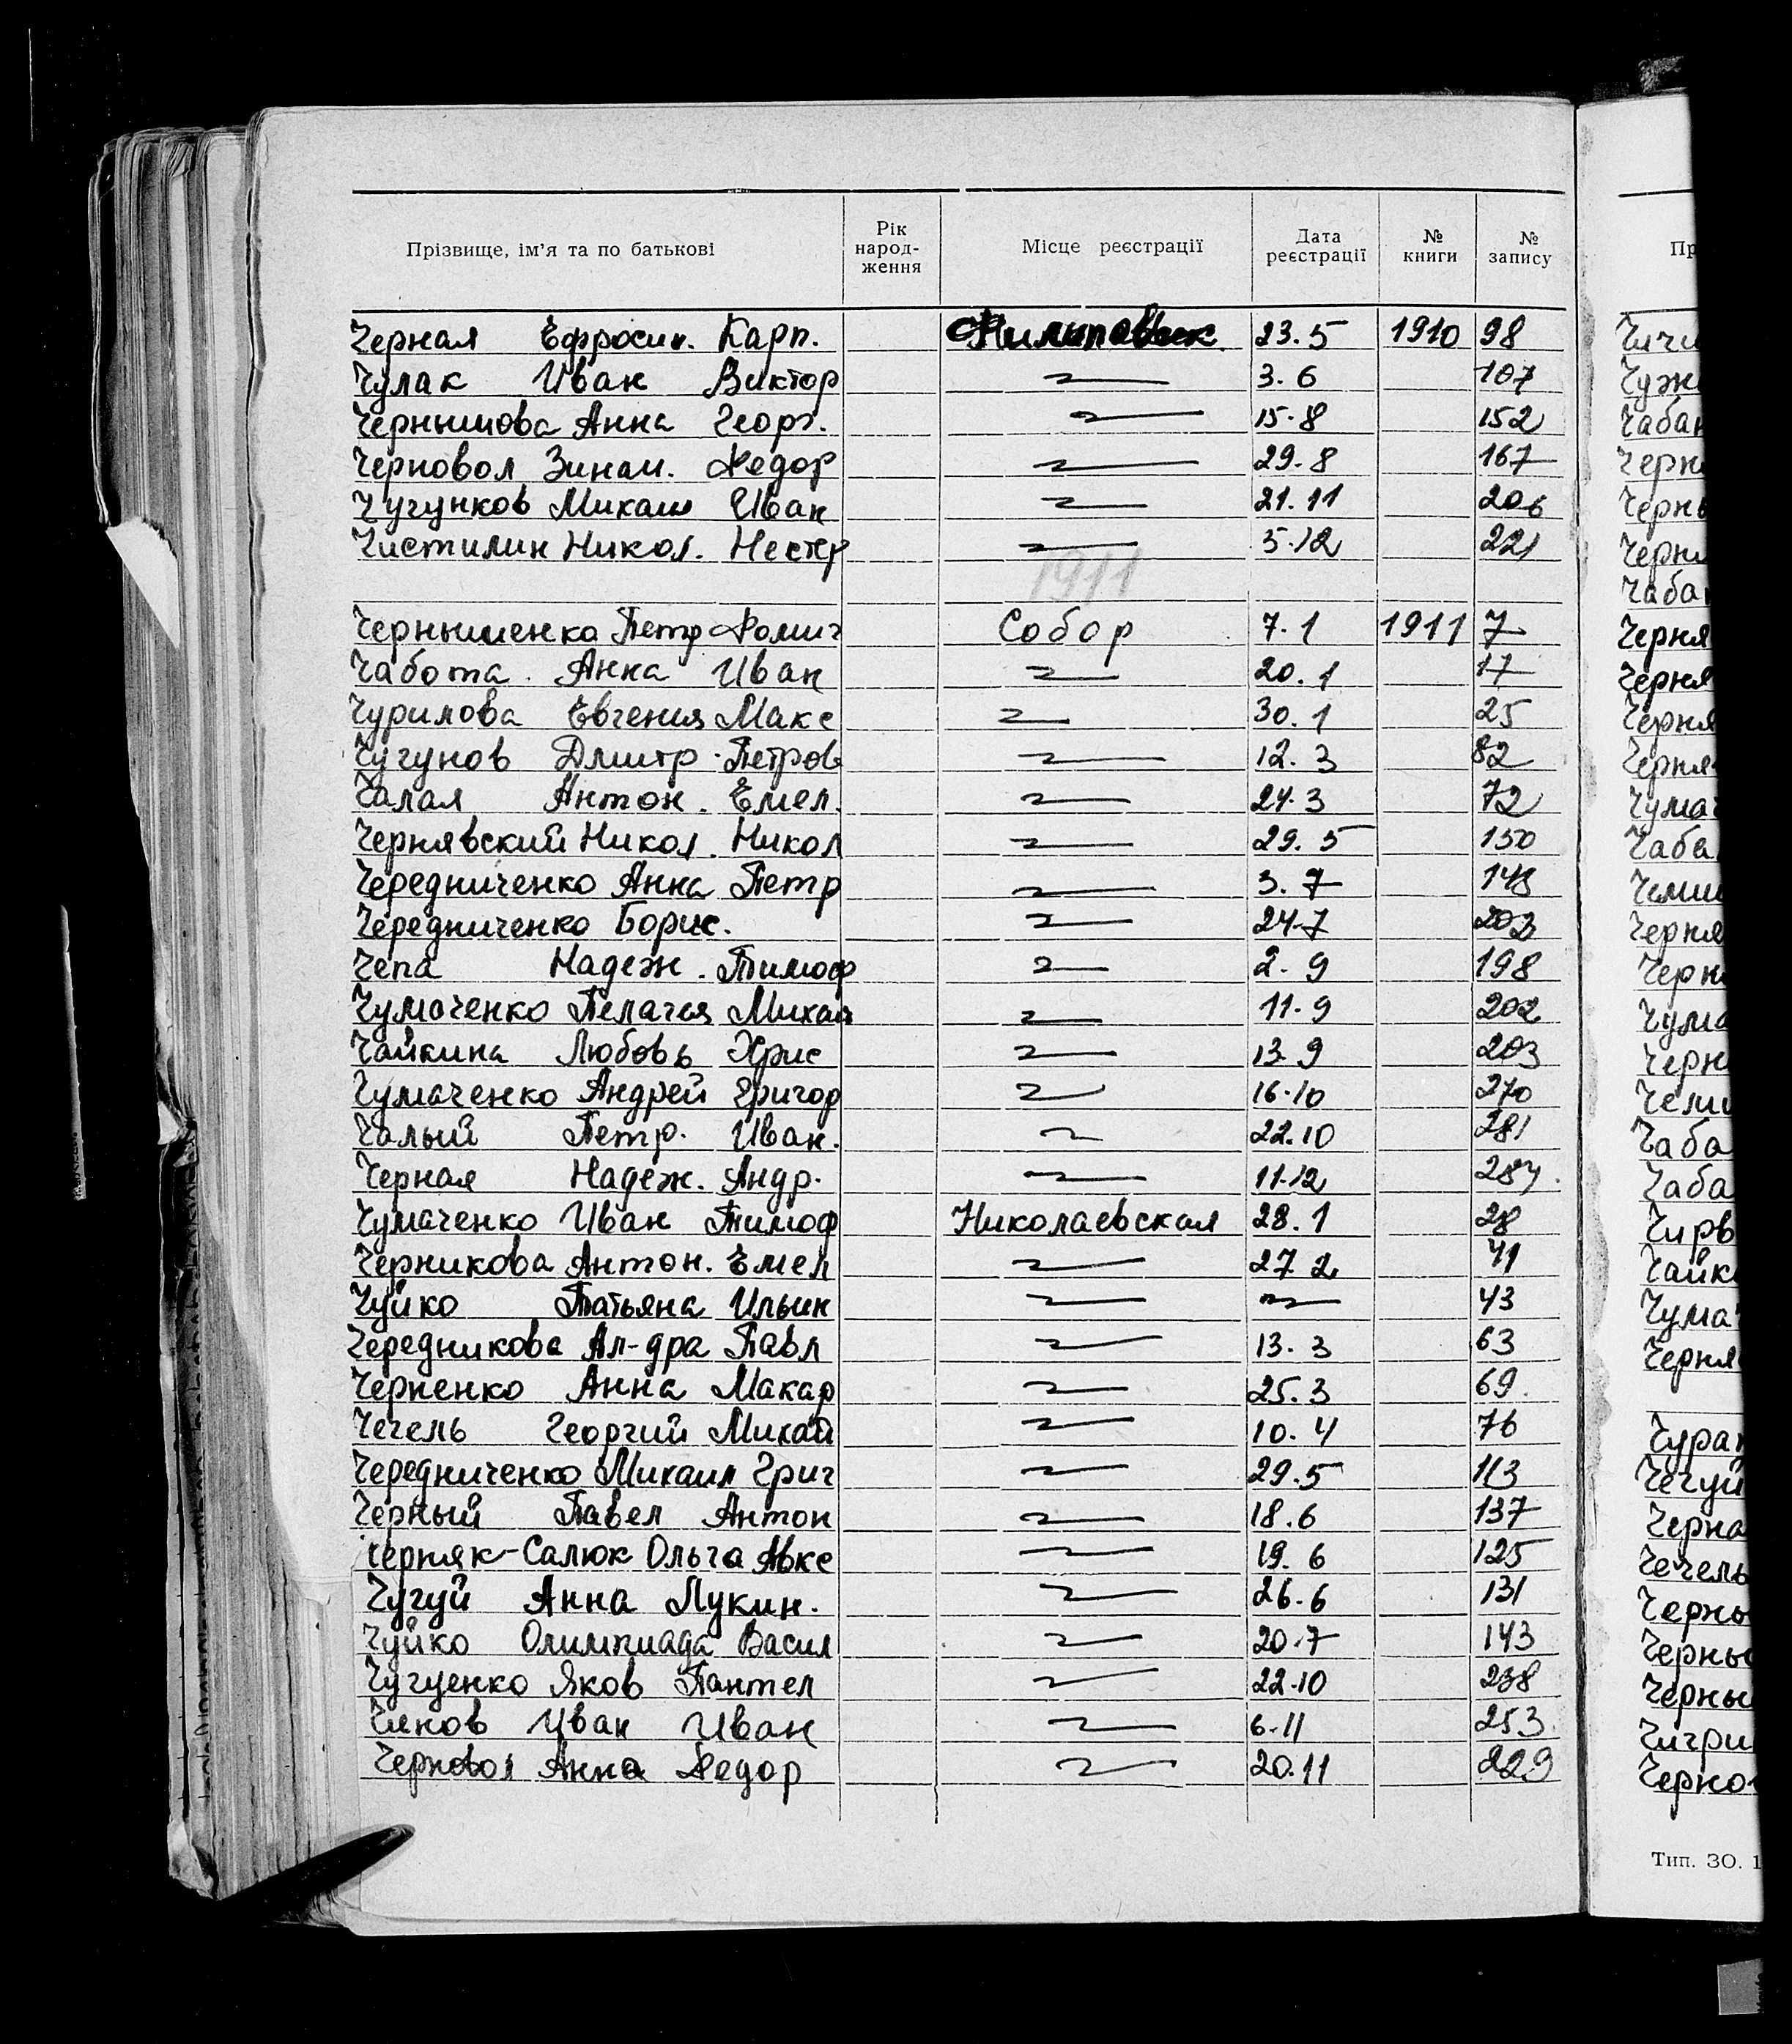 Прізвище, ім'я та по батькові Рік народ-ження Місце реєстрації Дата реєстрації № книги № запису
Черная Ефросин. Карп. 23.5 1910 98
Чулак Иван Виктор 3.6 107
Чернышова Анна Георг. 15.8 152
Черновол Зинаи. Федор 29.8 167
Чугунков Михаил Иван 21.11 206
Чистилин Никол. Нестер 5.12 221
1911
Чернышенко Петр Фомич Собор 7.1 1911 7
Чабота Анна Иван 20.1 17
Чурилова Евгения Макс 30.1 25
Чугунов Дмитр. Петров 12.3 82
Чалая Антон. Емел. 24.3 72
Чернявский Никол. Никол 29.5 150
Чередниченко Анна Петр 3.7 148
Чередниченко Борис. 24.7 203
Чепа Надеж. Тимоф 2.9 198
Чумаченко Пелагея Михаил 11.9 202
Чайкина Любовь Хрис 13.9 203
Чумаченко Андрей Григор 16.10 270
Чалый Петр. Иван. 22.10 281
Черная Надеж. Андр. 11.12
Чумаченко Иван Тимоф Николаевская 28.1 28
Черникова Антон. Емел 27.2 41
Чуйко Татьяна Ильин 43
Чередникова Ал-дра Павл 13.3 63
Черненко Анна Макар 25.3 69
Чечель Георгий Михай 10.4 76
Чередниченко Михаил Григ 29.5 113
Черный Павел Антон 18.6 137
Черняк-Салюк Ольга Авкс 19.6 125
Чугуй Анна Лукин. 26.6 131
Чуйко Олимпиада Васил 20.7 143
Чугуенко Яков Пантел 22.10 238
Иван Иван 6.11 253
Черновол Анна Федор 20.11 229
Тип. ЗО. 1